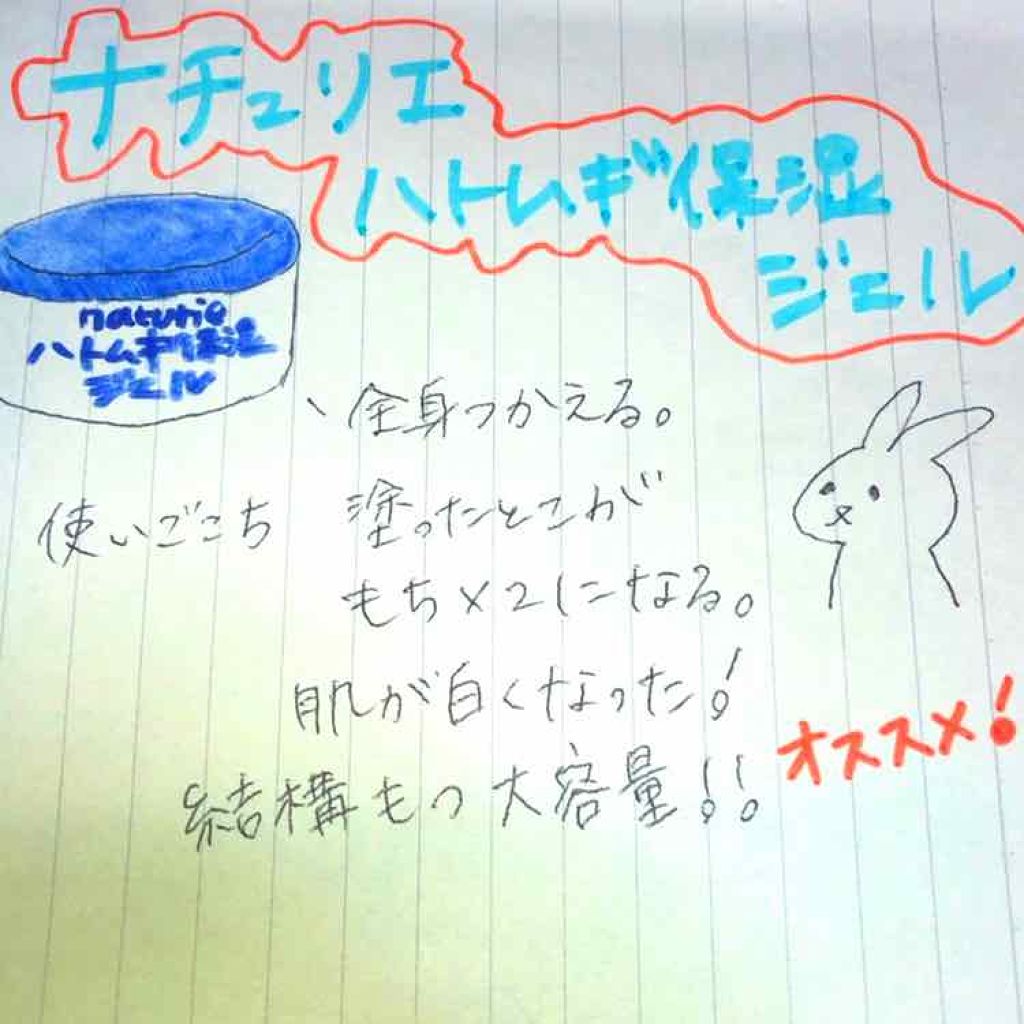 ナチュリエ
ハトムギ保湿
ジェル
naturie
ハトムギ保湿
ジェル
、全身つかえる。
使いごこち 塗ったとこが
もち×2になる。
肌が白くなった!
結構もつ大容量!!
オススメ!